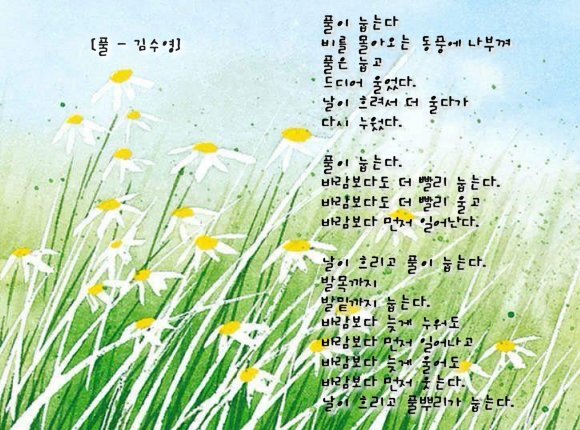 [풀 - 김수영]
풀이 눕는다
비를 몰아오는 동풍에 나부껴
풀은 눕고
드디어 울었다.
날이 흐려서 더 울다가
다시 누웠다.
풀이 눕는다.
바람보다도 더 빨리 눕는다.
바람보다도 더 빨리 울고
바람보다 먼저 일어난다.
날이 흐리고 풀이 눕는다.
발목까지
발밑까지 눕는다.
바람보다 늦게 누워도
바람보다 먼저 일어나고
바람보다 늦게 울어도
바람보다 먼저 웃는다.
날이 흐리고 풀뿌리가 눕는다.